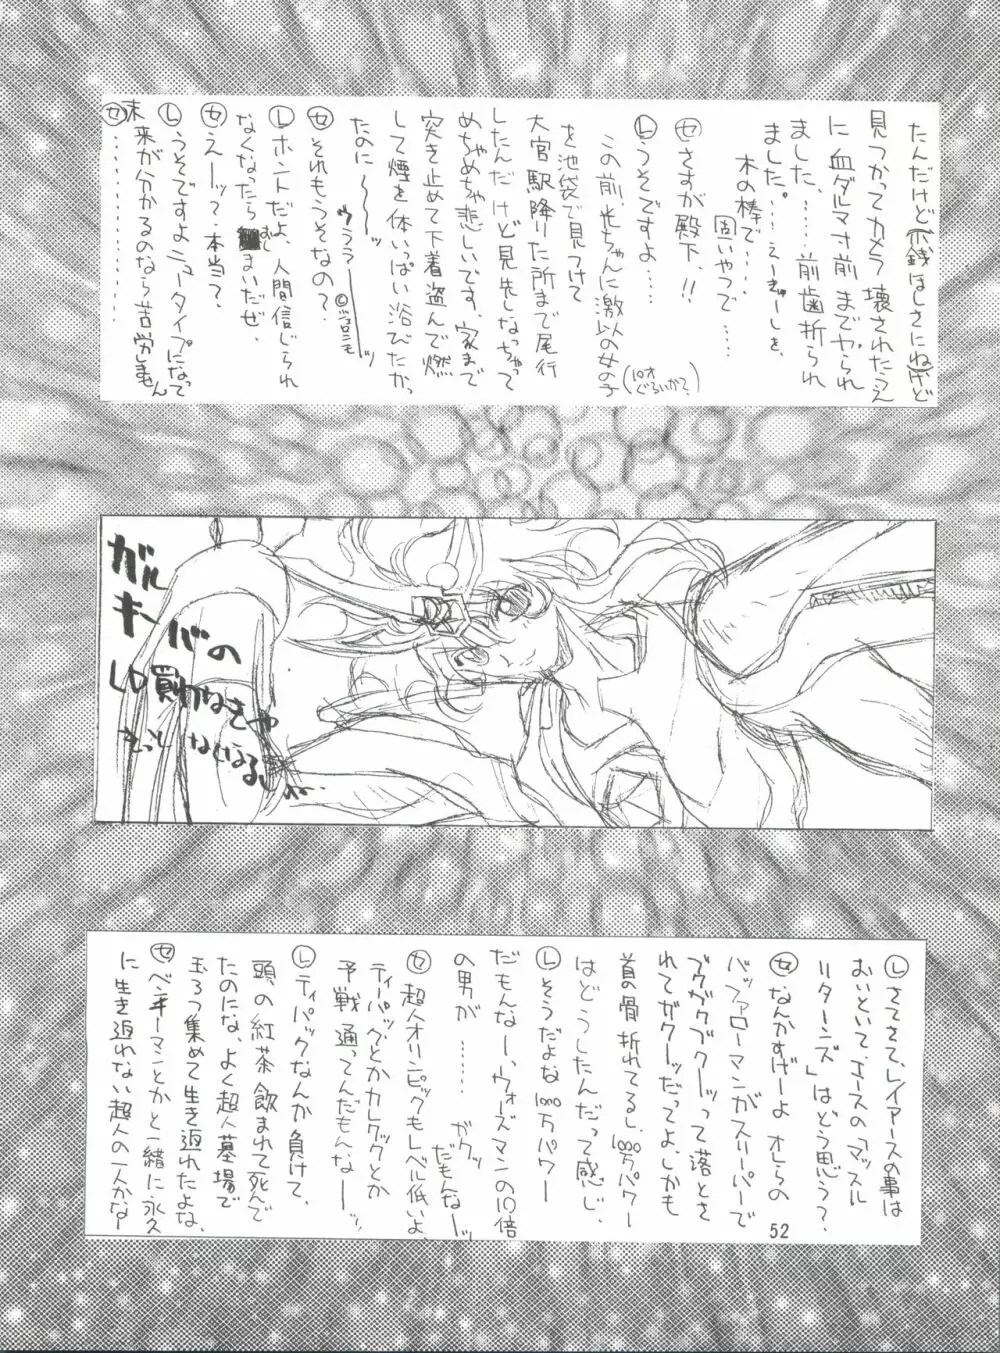 たんだけど(小銭ほしさにねけど
見つかってカメラ壊されたうえ
に血ダルマ寸前までやられ
ました、……前歯折られ
ました。…えーぎゅーしを、
木の棒で…
固いやつで……
㋝さすが殿下、!!
Ⓛうそですよ…
この前、光ちゃんに激似の女の子
(10才ぐらいかな?)
を池袋で見つけて
大宮駅降りた所まで尾行
したんだけど見失しなっちゃって
めちゃめちゃ悲しいです、家まで
突き止めて下着盗んで燃
して煙を体いっぱい浴びたかっ
たのに〜〜〜ッ
ウララ
㋝それもうそなの?
Ⓛホントだよ、人間信じられ
なくなったらおしまいだぜ、
㋝えーッ?本当?、
Ⓛうそですよニュータイプになって
未来が分かるのなら苦労しません
㋝…………
ガルキーバの
LD買わなきゃ
きっとなくなるし
Ⓛさてさて、レイアースの事は
おいといて、エースの「マッスル
リターンズ」はどう思う?、
㋝なんかすげーよ オレらの
バッファローマンがスリーパーで
ブクブクブクーッって落とさ
れてガクーッだってよ、しかも
首の骨折れてるし、1000万パワー
はどうしたんだって感じ、
Ⓛそうだよな1000万パワー
だもんなー、ウォーズマンの10倍
の男が……ガクッ
だもんなーッ
㋝超人オリンピックもレベル低いよ、
ティーパックとかカレクックとか
予戦通ってんだもんなーッ
Ⓛティーパックなんか負けて、
頭の紅茶飲まれて死んで
たのにな、よく超人墓場で
玉ろつ集めて生き返れたよな、
㋝ベンキーマンとかと一緒に永久
に生き返れない超人の一人かなー
52